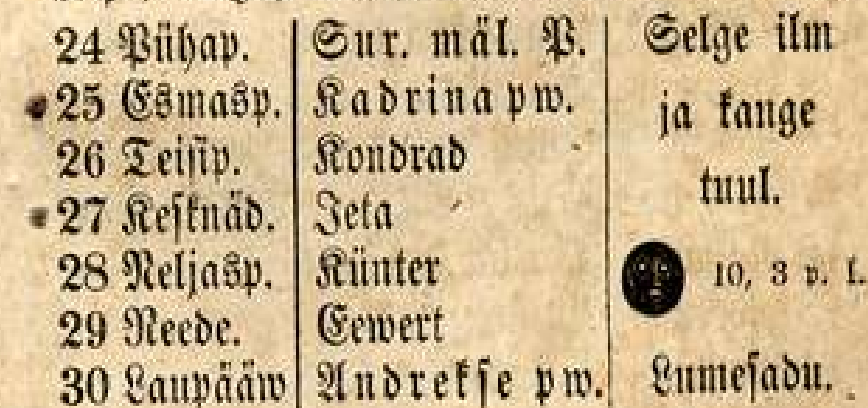 24 Pühap. Sur. mäl. P. Selge ilm
25 Esmasp. Kadrina pw. ja kange
26 Teisip. Kondrad
tuul.
27 Kesknäd. Jeta
28 Neljasp. Künter 10, 3 p. l.
29 Reede. Eewert
30 Laupääw Andrekse pw. Lumesadu.